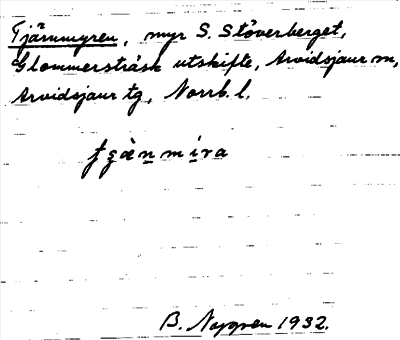 Tjärnmyren, myr S. Stöverberget,
Glommersträsk utskifte, Arvidsjaur sn,
Arvidsjaur tg, Norrb. l.
B. Nygren 1932.